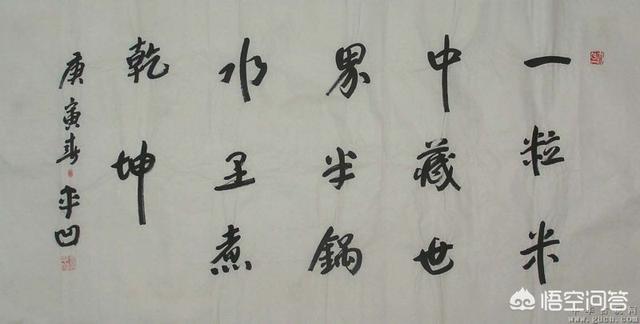 一粒米
中藏世
界半锅
水里煮
乾坤
庚寅春平凹
悟空问答
www.gucn.com